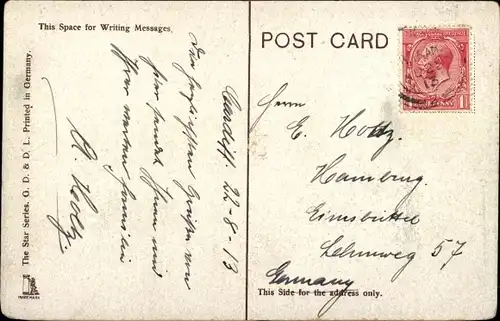 This Space for Writing Messages.
POST CARD
The Star Series. G. D. & D. L. Printed in Germany.
Cardiff. 22-8-13
Die herzlichsten Grüßen von
hier sendet Ihnen und
Ihrer werten Familie
A. Holtz.
Herrn
E. Holtz.
Hamburg
Eimsbüttel
57
Germany
This Side for the address only.
TRADE MARK